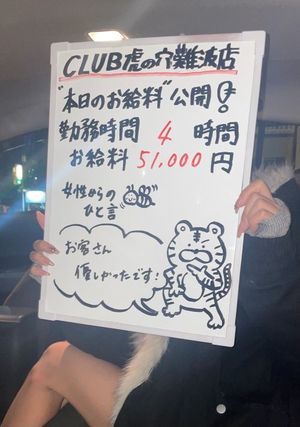 CLUB虎の穴難波店
"本日のお給料"公開!
勤務時間 4 時間
お給料 51,000 円
女性からの
ひと言
お客さん
優しかったです!